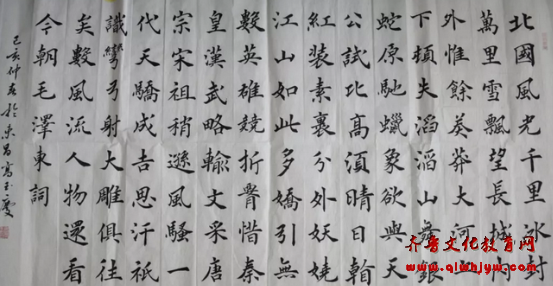 北國風光千里冰封
萬里雪飄望長城内
外惟餘莽莽大河上
下頓失滔滔山舞銀
蛇原馳蠟象欲與天
公試比高須晴日
紅裝素裹分外妖嬈
江山如此多嬌引無
數英雄競折腰惜秦
皇漢武略輸文采唐
宗宋祖稍遜風騷一
代天驕成吉思汗祇
識彎弓射大雕俱往
矣數風流人物還看
今朝毛澤東詞
己亥仲春於東昌寫玉慶
齐鲁文化教育网
www.qlwhjyw.com